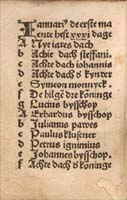 Januari⁹ de erste ma
ente hefft xxxi dage
A Nye iares dach
b Achte dach steffani.
c Achte dach iohannis
d Achte dach d' kynder
e Symeon monnyck.
f De hilge dre köninge
g Lucius bysschop
A Erhardus bysschop
b Julianus pawes
c Paulus klusener
d Petrus ignimius
e Johannes bysschop.
f Achte dach d' köninge